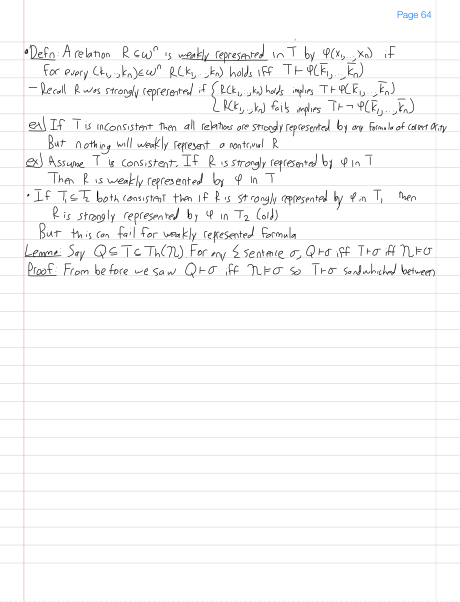 Page 64
• Defn: A relation R⊆ω^n is weakly represented in T by φ(x₁,..,xₙ) if
for every (k₁,..,kₙ)∈ω^n R(k₁,..,kₙ) holds iff T⊢φ(k̄₁,..,k̄ₙ)
– Recall R was strongly represented if { R(k₁,..,kₙ) holds implies T⊢φ(k̄₁,..,k̄ₙ)
R(k₁,..,kₙ) fails implies T⊢¬φ(k̄₁,..,k̄ₙ)
ex) If T is inconsistent then all relations are strongly represented by any formula of correct arity
But nothing will weakly represent a nontrivial R
ex) Assume T is consistent. If R is strongly represented by φ in T
Then R is weakly represented by φ in T
• If T₁⊆T₂ both consistent then if R is strongly represented by φ in T₁ then
R is strongly represented by φ in T₂ (old)
But this can fail for weakly represented formula
Lemma: Say Q⊆T⊆Th(N). For any Σ sentence σ, Q⊢σ iff T⊢σ iff N⊨σ
Proof: From before we saw Q⊢σ iff N⊨σ so T⊢σ sandwhiched between